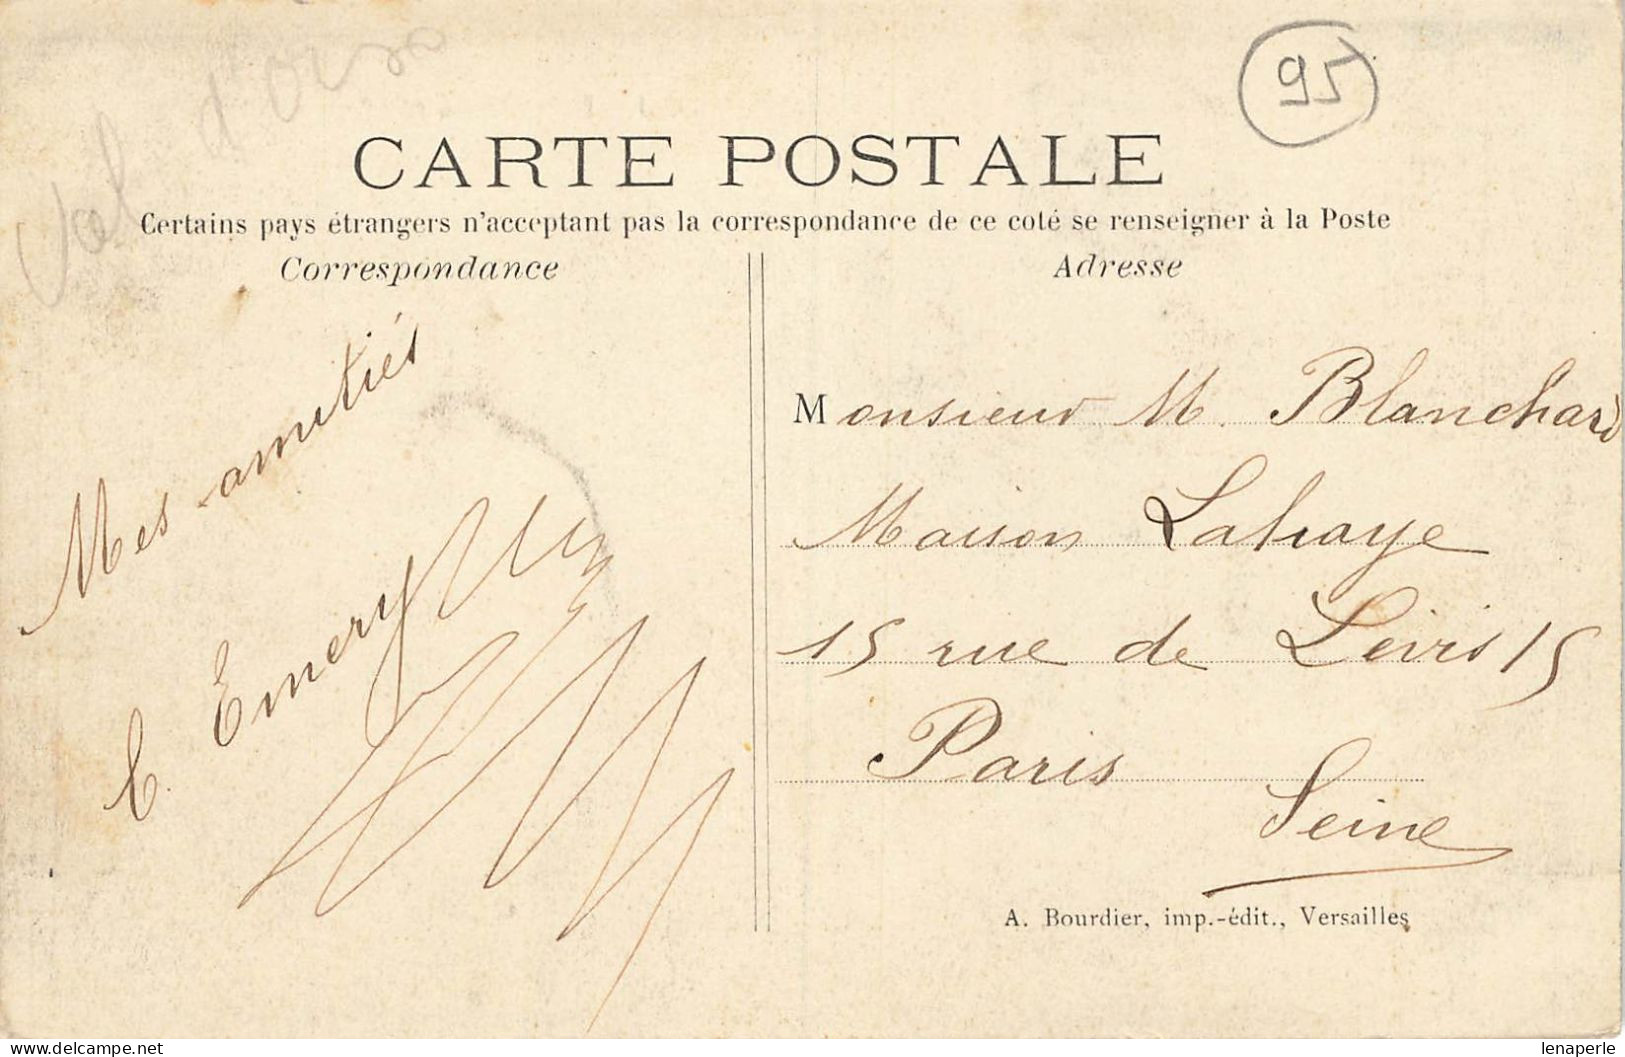 Val d'Oise
95
CARTE POSTALE
Certains pays étrangers n'acceptant pas la correspondance de ce coté se renseigner à la Poste
Correspondance
Mes amitiés
E. Emery
Adresse
Monsieur M. Blanchard
Maison Lahaye
15 rue de Levis 15
Paris
Seine
A. Bourdier, imp.-édit., Versailles
delcampe.net
lenaperle